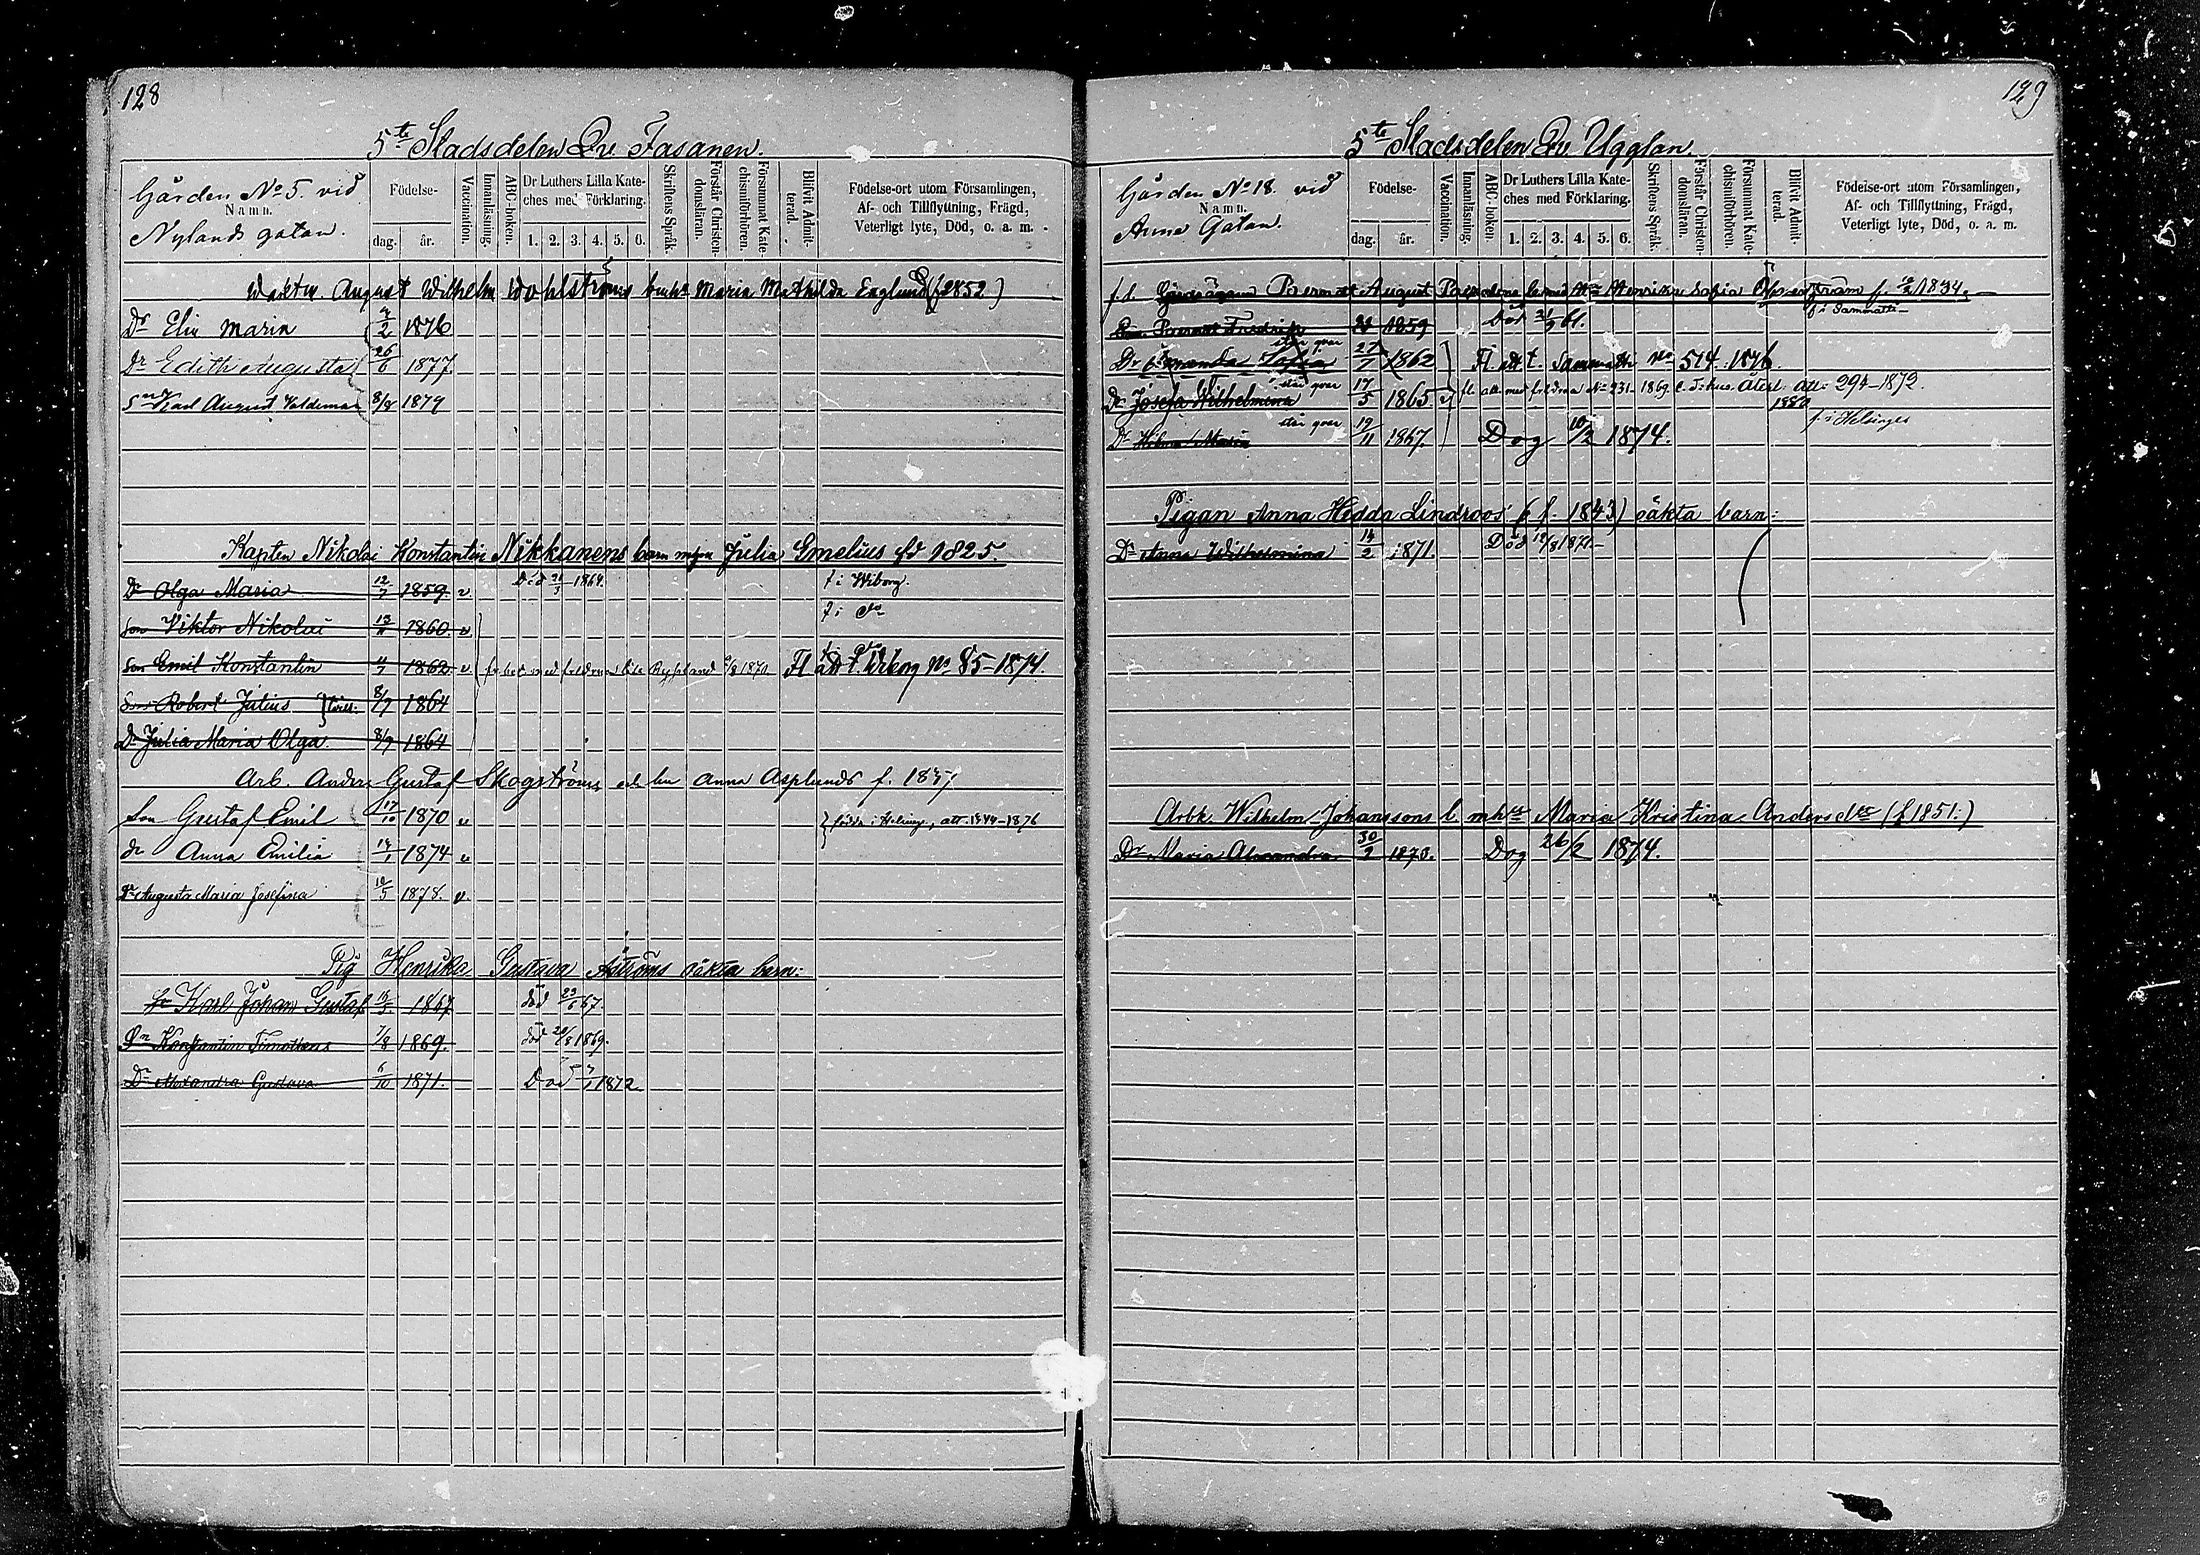 128
5te Stadsdelen Qv. Fasanen.
Gården No 5. vid
Namn.
Nylands gatan.
Födelse-
dag. år.
Vaccination.
Innanläsning.
ABC-boken.
Dr Luthers Lilla Kate-
ches med Förklaring.
1. 2. 3. 4. 5. 6.
Skriftens Språk.
Förstår Christen-
domsläran.
Försummat Kate-
chismiförhören.
Blifvit Admit-
terad.
Födelse-ort utom Församlingen,
Af- och Tillflyttning, Frägd,
Veterligt lyte, Död, o. a. m.
August Wilhelm Wohlströms Maria Mathilda Englund (f 1852)
Dr Elin Maria 2 1876
Dr Edith Augusta 26/6 1877.
Karl August Valdemar 8/8 1879
Kapten Nikolai Konstantin Nikkanens barn m Julia Emelius fd 1825.
Dr Olga Maria 12/7 1859 v Död 21/3 1864. f i Wiborg.
Son Viktor Nikolai 13/11 1860 v f i do
Son Emil Konstantin 1862 v 1870. Fl att t. Wiborg No 85-1874.
Son Robert Julius 8/7 1864
Dr Julia Maria Olga 8/7 1864
Arb. Anders Gustaf Skogströms Anna Asplunds f. 1837
Son Gustaf Emil 17/10 1870 v födda i Helsinge, att 1876
dr Anna Emilia 14/1 1874 v
Dr Augusta Maria Josefina 10/5 1878. v.
Pig Henrika Gustava Åströms oäkta barn:
Sn Karl Johan Gustaf 1867 död 23/6 67.
Sn Konstantin Timotheus 7/8 1869. död 20/8 1869.
Dr Alexandra Gustava 6/10 1871. Död 1872
129
5te Stadsdelen Qv. Ugglan.
Gården No 18. vid
Namn.
Anna Gatan.
Födelse-
dag. år.
Vaccination.
Innanläsning.
ABC-boken.
Dr Luthers Lilla Kate-
ches med Förklaring.
1. 2. 3. 4. 5. 6.
Skriftens Språk.
Förstår Christen-
domsläran.
Försummat Kate-
chismiförhören.
Blifvit Admit-
terad.
Födelse-ort utom Församlingen,
Af- och Tillflyttning, Frägd,
Veterligt lyte, Död, o. a. m.
f.d. August Sofia f. 1834.
Fredrik 1859 Död 61. f i Sammatti
står qver
Dr Amanda Sofia 27/7 1862 Fl att t. Sammatti No 514. 1876.
står qver
Dr Josefa Wilhelmina 17/5 1865 v fl att med föräldrarna No 231-1869. Åter att: 294-1872.
står qver
Dr Hilma Maria 19/11 1867 Dog 10/2 1874. f i Helsinge
Pigan Anna Hedda Lindroos' (f. 1843) oäkta barn:
Dr Anna Wilhelmina 14/2 1871. Död 12/8 1871.
Arbk. Wilhelm Johanssons b. m h Maria Kristina Andersdtr (f 1851.)
Dr Maria Alexandra 30/9 1873. Dog 26/2 1874.